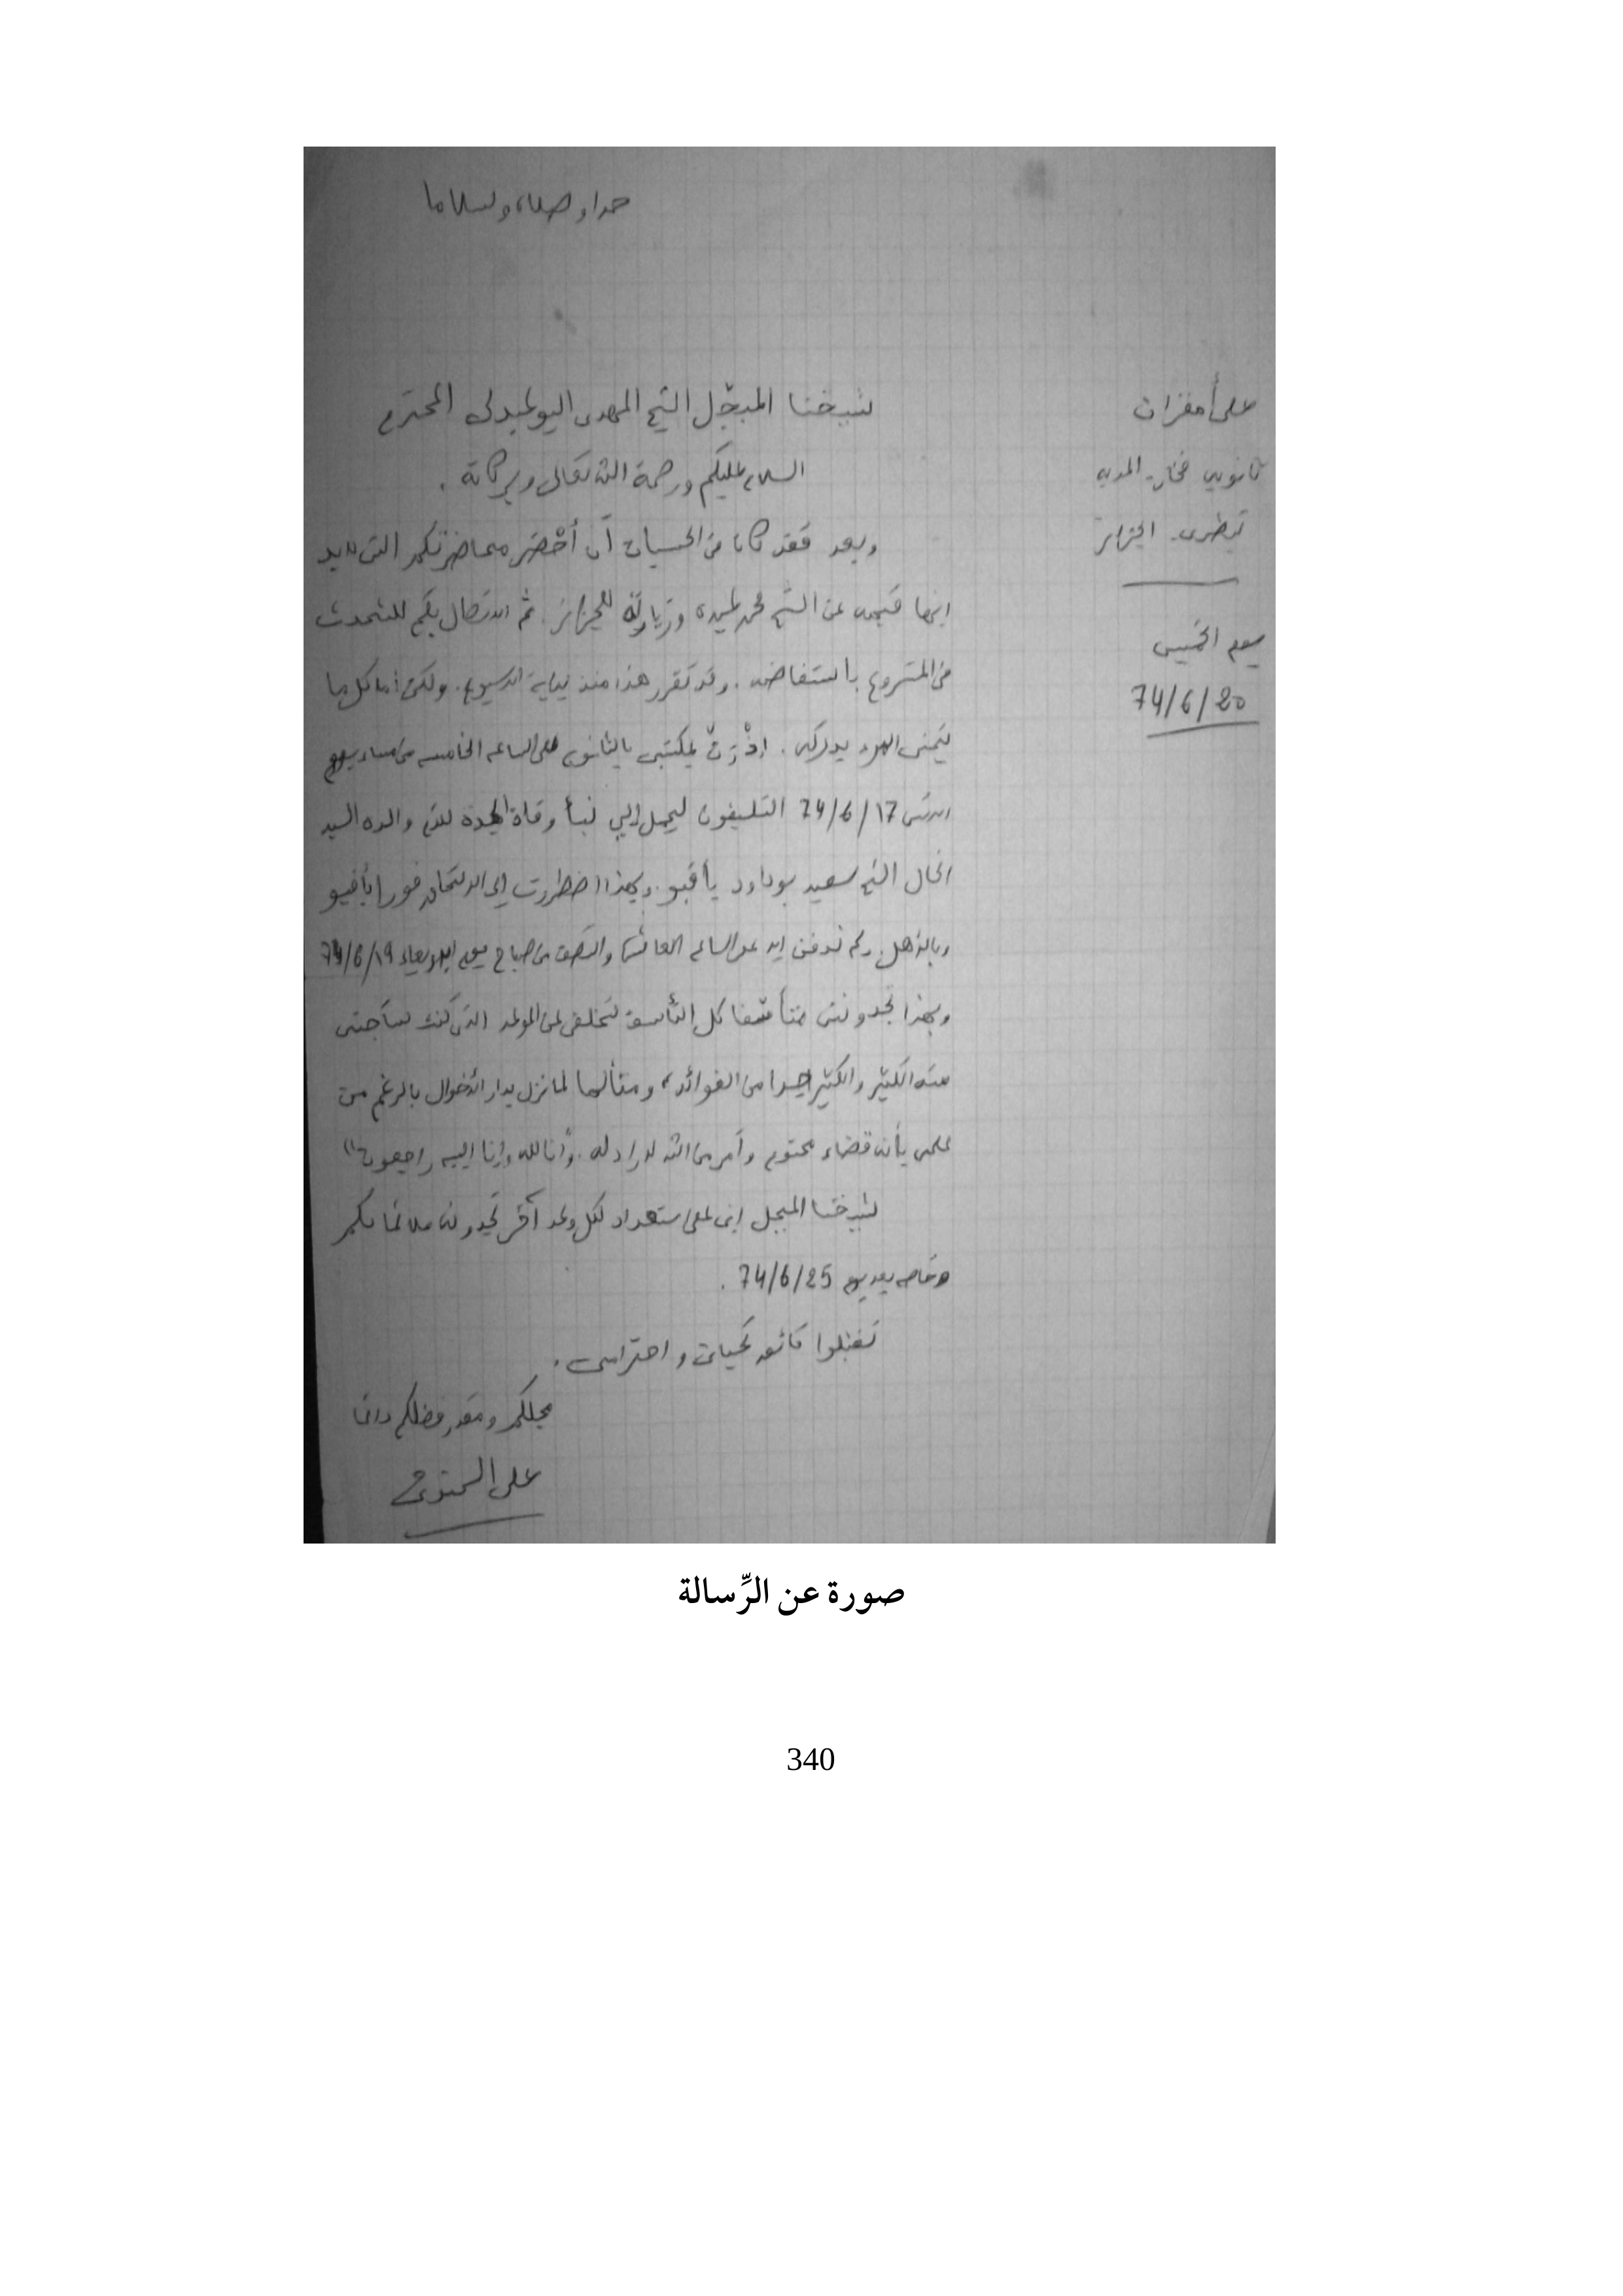 حمدا وصلاة وسلاما
علي أمقران
ثانوية فخار - المدية
تيطري - الجزائر
يوم الخميس
74/6/20
شيخنا المبجّل الشيخ المهدي البوعبدلي المحترم
السلام عليكم ورحمة الله تعالى وبركاته .
وبعد فقد كان من الحسبان أن أحْضر محاضرتكم التي لابد
انها قيمة عن الشيخ محمد عبده وزيارته للجزائر . ثم الاتصال بكم للتحدث
عن المشروع باستفاضة . وقد تقرر هذا منذ بداية الاسبوع . ولكن ما كل ما
يتمنى المرء يدركه . اذْ رَنّ بمكتبي بالثانوية على الساعة الخامسة من مساء يوم
الاثنين 17/6/74 التليفون ليحمل إلي نبأ وفاة الجدة للأم والدة السيد
الخال الشيخ سعيد بوداود بأقبو . وبهذا اضطررت إلى الالتحاق فورا بأقبو
وبالأهل . ولم تدفن إلا على الساعة العاشرة والنصف من صباح يوم الاربعاء 74/6/19
وبهذا تجدونني متأسفا كل التأسف لتخلفي عن الموعد الذي كنت سأجني
منه الكثير والكثير جدا من الفوائد ، ومتألما لما نزل بدار الأخوال بالرغم من
علمي بأنه قضاء محتوم وأمر من الله لا راد له . و"انا لله وإنا اليه راجعون"
شيخنا المبجل اني على استعداد لكل وعد آخر تجدونه ملائما لكم
وخاصة بعد يوم 74/6/25 .
تفضلوا فائق تحياتي واحترامي .
مجلكم ومقدر فضلكم دائما
علي
صورة عن الرِّسالة
340